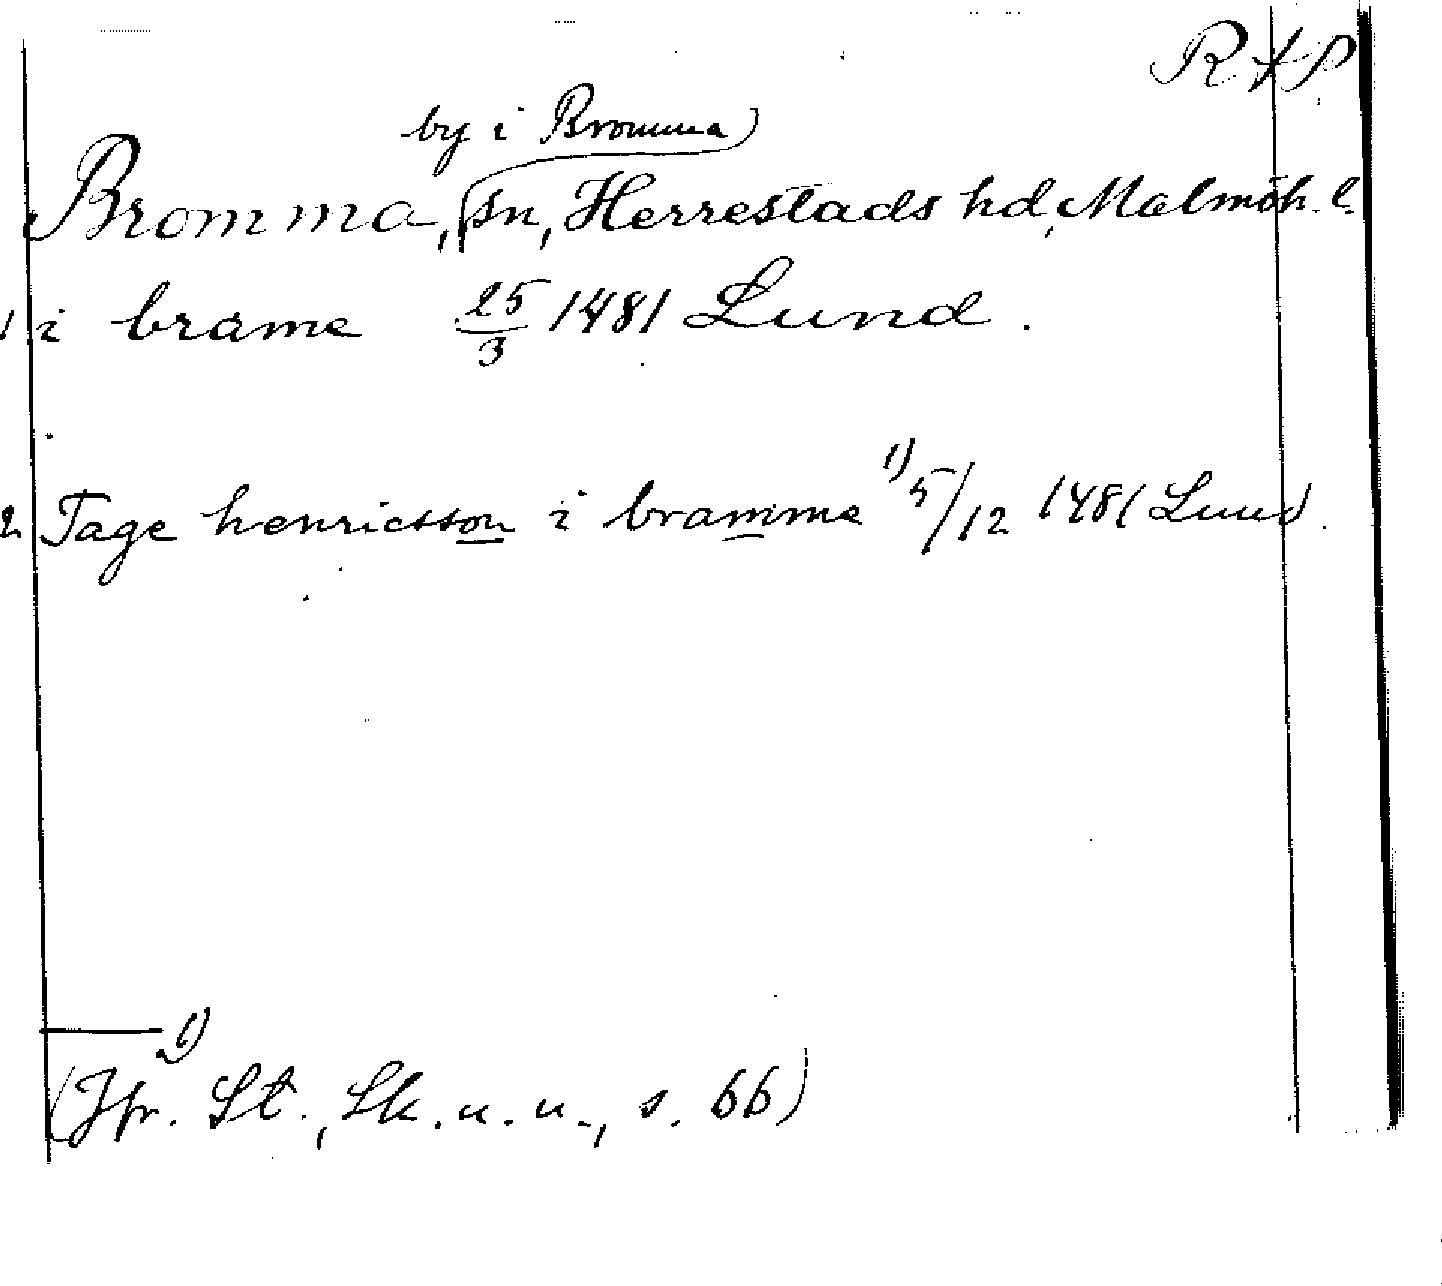 RAP
by i Bromma
Bromma, sn, Herrestads hd, Malmöh. l.
1 i brame 25/3 1481 Lund.
2. Tage henricsson i bramme 1) 5/12 1481 Lund.
1)
(Jfr. St., Sk. u. u., s. 66)